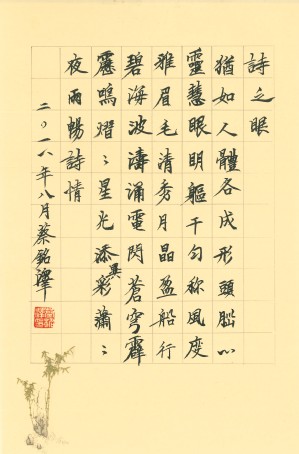 詩之眼
猶如人體各成形頭腦心
靈慧眼明軀干勻称風度
雅眉毛清秀月晶盈船行
碧海波濤涌電閃蒼穹霹
靂鳴熠〻星光添異彩瀟〻
夜雨暢詩情
二〇一八年八月蔡銘澤